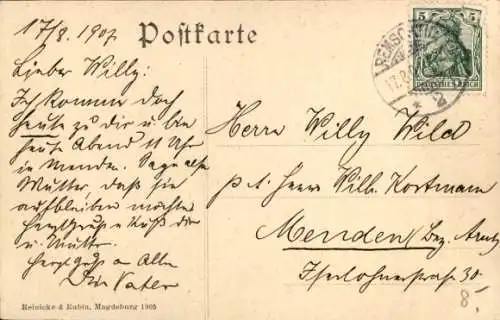 17/8. 1907
Postkarte
Lieber Willy!
Ich komme doch
heute zu dir u bin
heute Abend 11 Uhr
in Menden. Sage also
Mutter, daß sie
aufbleiben möchte
Herzl Gruß u Kuß dir
u. Mutter.
Herzl Gruß an Alle
Dein Vater
Reinicke & Rubin, Magdeburg 1905
REMSCHEID
17.8
* 2
5 5
DEUTSCHES REICH
Herrn Willy Wild
p. A. Herrn Wilh. Kortmann
Menden (Bez. Arnsb
Iserlohnerstraße 30.
8.-